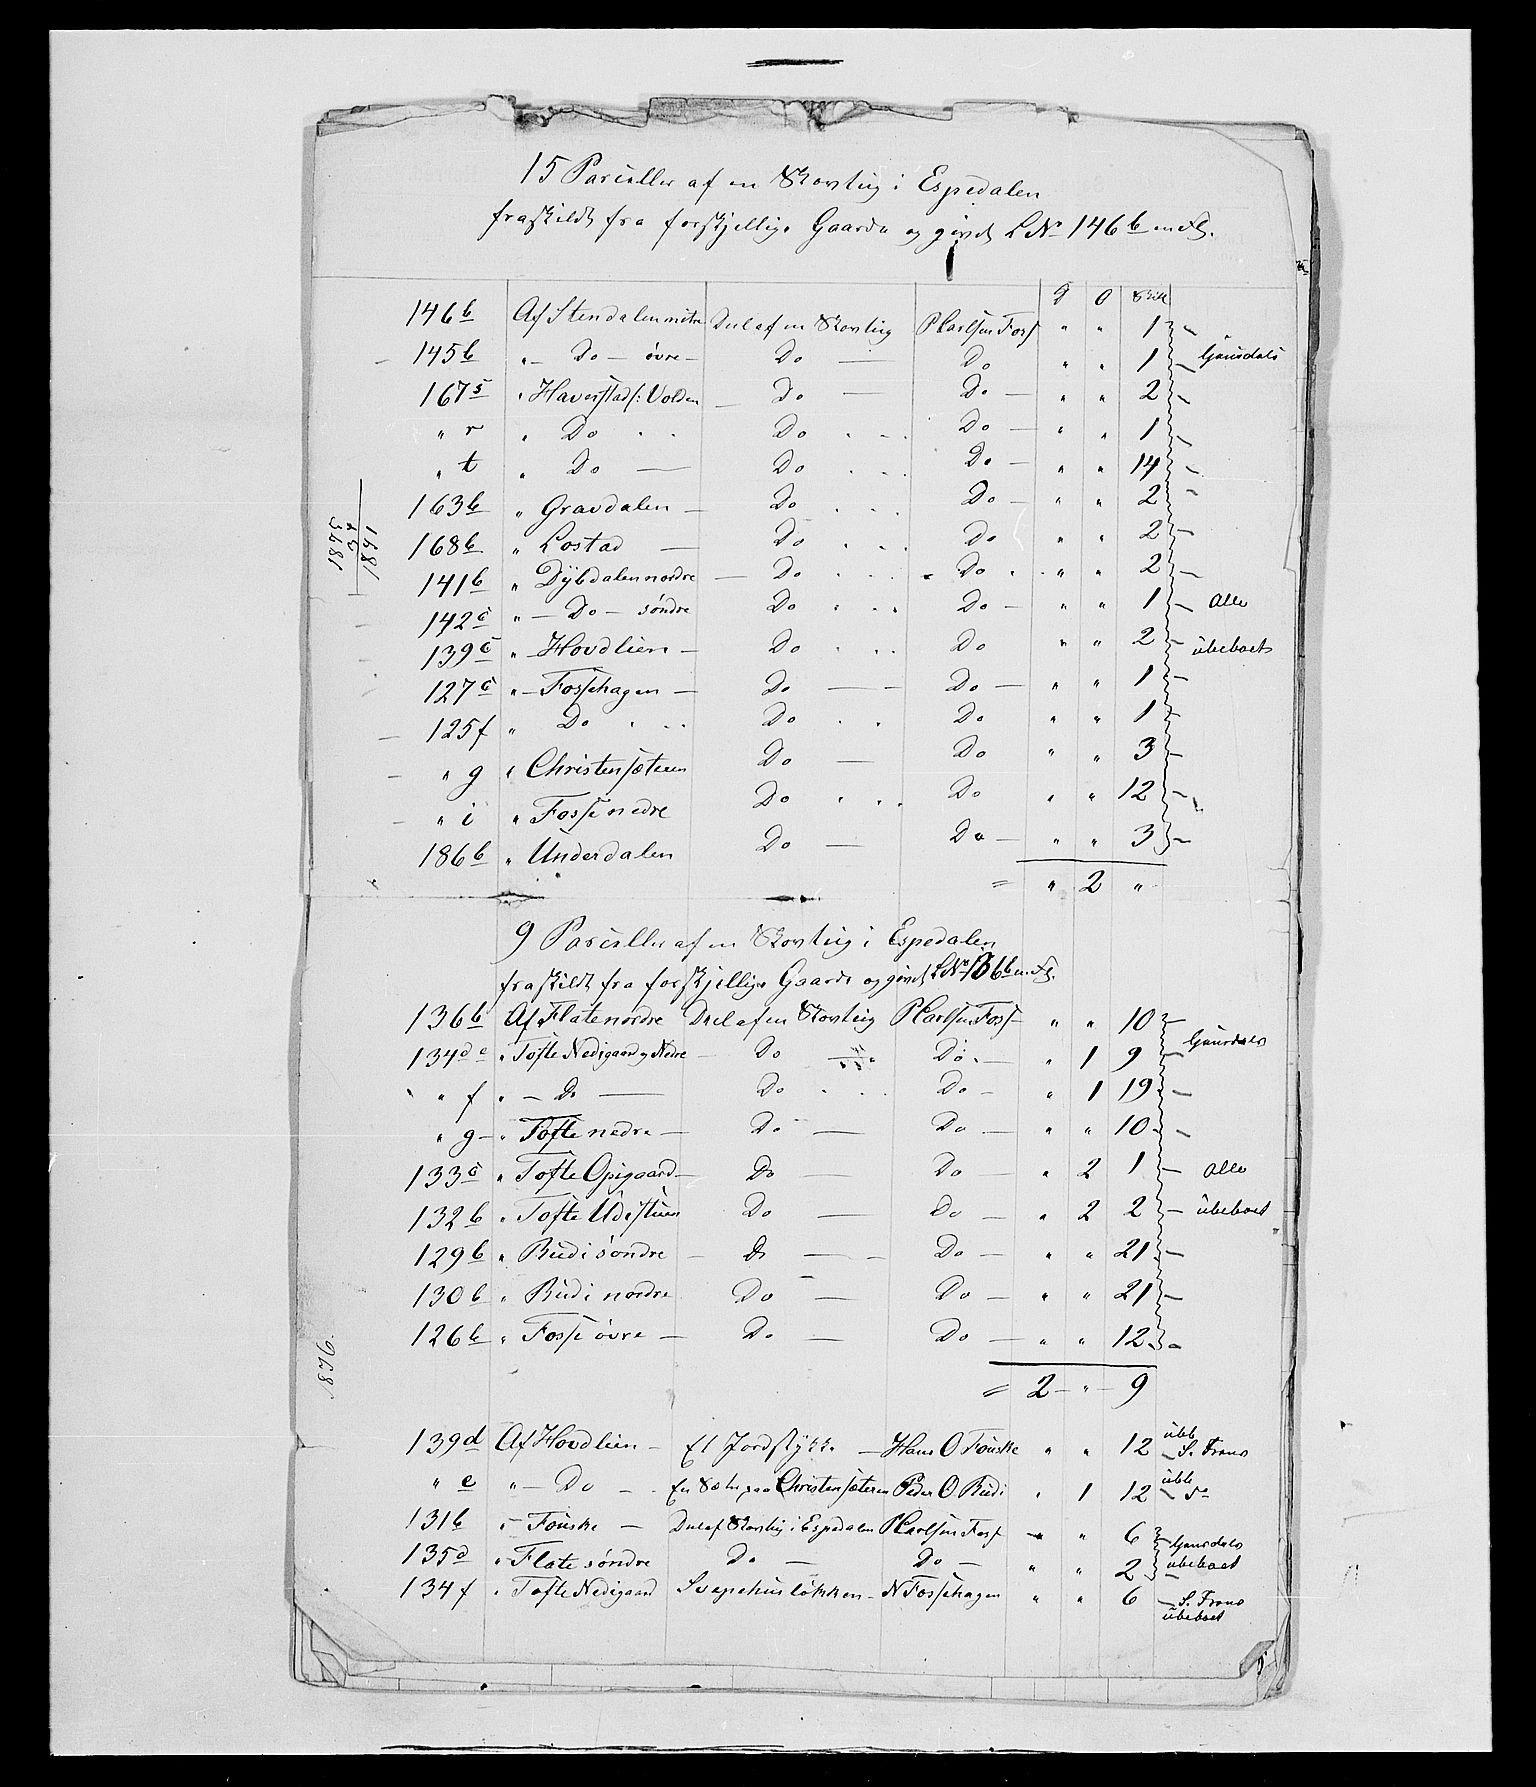 15 Parceller af en Skovteig i Espedalen
fraskildt fra forskjellige Gaarde og givet L No 146 b m Fl.
D O Skill
146 b Af Stendalen nitre Deel af en Skovteig P Carlsen Foss " " 1
145 b " - Do - övre - Do - Do " " 1 Gausdals
167 s " Haverstad /: Volden - Do - Do - " " 2
" r " Do Do Do - " " 1
" t " Do - Do Do - " " 14
163 b " Gravdalen - Do Do - " " 2
168 b " Lostad - Do Do " " 2
141 b " Dybdalen nordre - Do Do " " 2
142 c " - Do - söndre Do Do - " " 1 alle
139 c " - Hovdlien - Do Do " " 2 ubeboet
127 c " - Fossehagen - Do - Do - " " 1
125 f " Do Do Do " " 1
" g " Christensæteren Do - Do " " 3
" i " Fosse nedre Do Do " " 12
186 b " Underdalen Do - Do - " " 3
= " 2 "
9 Parceller af en Skovteig i Espedalen
fraskildt fra forskjellige Gaarde og givet L No 136 b m. Fl.
136 b Af Flate nordre Deel af en Skovteig P Carlsen Foss - " " 10
134 d e " Tofte Nedigaard og Nedre - Do Do - " 1 9 Gausdals
" f " - Do - Do Do - " 1 19
" g - " Tofte nedre - Do - Do - " " 10
133 c " Tofte Opigaard - Do - Do - " 2 1 alle
132 b " Tofte Udistuen Do - Do - " 2 2 ubeboet
129 b " Rudi söndre - Do - Do - " " 21
130 b " Rudi nordre Do - Do - " " 21
126 b " Fosse övre - Do - Do - " " 12
= 2 - " - 9
139 d Af Hovdlien - Et Jordstykke - Hans O Fouske " " 12 ubb S. Frons
" e " - Do - En Sæter paa Christensæteren Peder O Rudi " 1 12 ubb do
131 b " Fouske - Deel af Skovteig i Espedalen P Carlsen Foss - " " 6 Gausdals
135 d " Flate söndre Do - Do - " " 2 ubeboet
134 f " Tofte Nedigaard Svepehuslökken - N Fossehagen " " 6 S. Frons
ubeboet